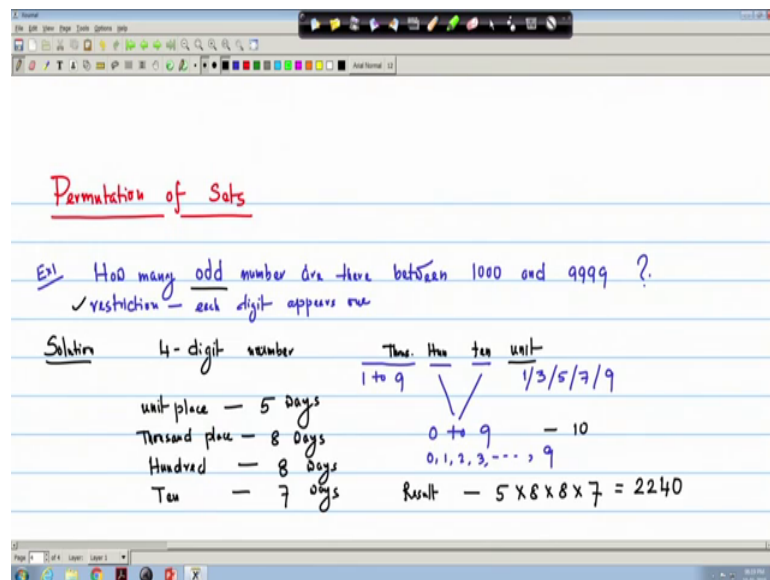 Journal
File Edit View Page Tools Options Help
Arial Normal 12
Permutation of Sets
Ex1 How many odd number are there between 1000 and 9999 ?
✓restriction – each digit appears one
Solution 4-digit number Thous. Hun ten unit
1 to 9 1/3/5/7/9
unit place – 5 Days
Thousand place – 8 Days 0 to 9 – 10
Hundred – 8 Days 0, 1, 2, 3, ---, 9
Ten – 7 Days Result – 5 x 8 x 8 x 7 = 2240
Page 4 of 4 Layer: Layer 1